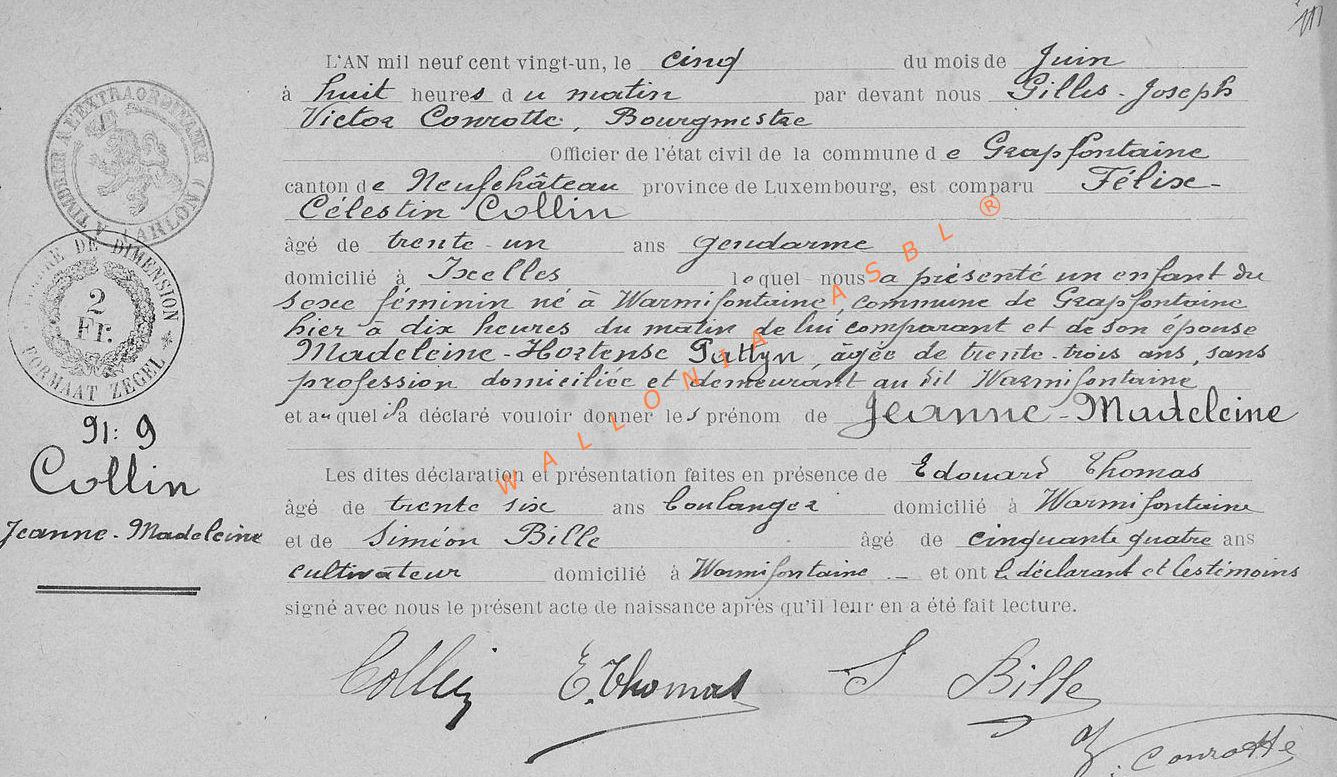 L'AN mil neuf cent vingt-un, le cinq du mois de Juin
à huit heures du matin par devant nous Gilles-Joseph
Victor Conrotte, Bourgmestre
Officier de l'état civil de la commune de Grapfontaine
canton de Neufchâteau province de Luxembourg, est comparu Félix-
Célestin Collin
âgé de trente-un ans gendarme
domicilié à Ixelles lequel nous a présenté un enfant du
sexe féminin né à Warmifontaine, commune de Grapfontaine
hier à dix heures du matin de lui comparant et de son épouse
Madeleine-Hortense Pattyn âgée de trente-trois ans, sans
profession domiciliée et demeurant au dit Warmifontaine
et auquel il a déclaré vouloir donner les prénom de Jeanne-Madeleine
Les dites déclaration et présentation faites en présence de Edouard Thomas
âgé de trente six ans boulanger domicilié à Warmifontaine
et de Siméon Bille âgé de cinquante quatre ans
cultivateur domicilié à Warmifontaine et ont le déclarant et les témoins
signé avec nous le présent acte de naissance après qu'il leur en a été fait lecture.
Collin E. Thomas S Bille
Conrotte
TIMBRE A L'EXTRAORDINAIRE
(ARLON)
TIMBRE DE DIMENSION
2
Fr.
FORMAAT ZEGEL
N: 9
Collin
Jeanne-Madeleine
WALLONIA ASBL ®